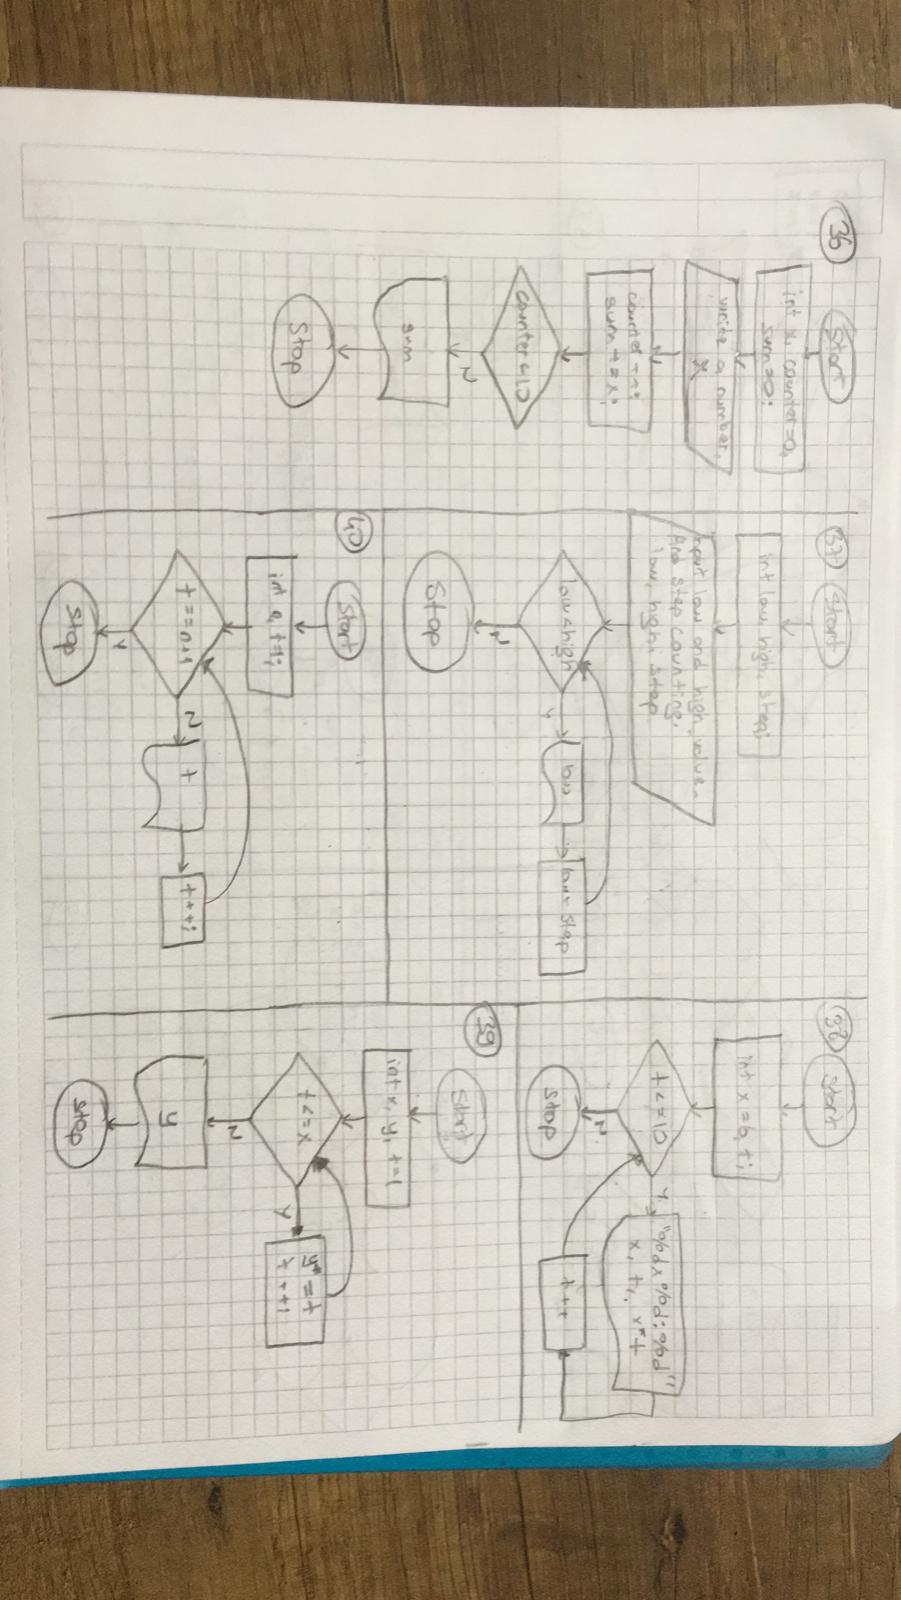 36
Start
int x, counter=0,
sum=0;
write a number,
x
sum += x;
counter<10
N
sum
Stop
37
Start
int low, high, step;
Input low and high value,
And step counting.
low, high, step
low<high
Y
low
N
Stop
38
Start
t<=10
Y
"%dx%d:%d"
t++
N
Stop
39
Start
int x, y, t=1
t<=x
Y
y*=t
N
y
Stop
40
Start
t==n+1
N
t
t++;
Y
Stop